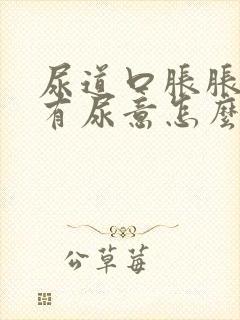 尿道口脹脹
有尿意怎麼
公草莓